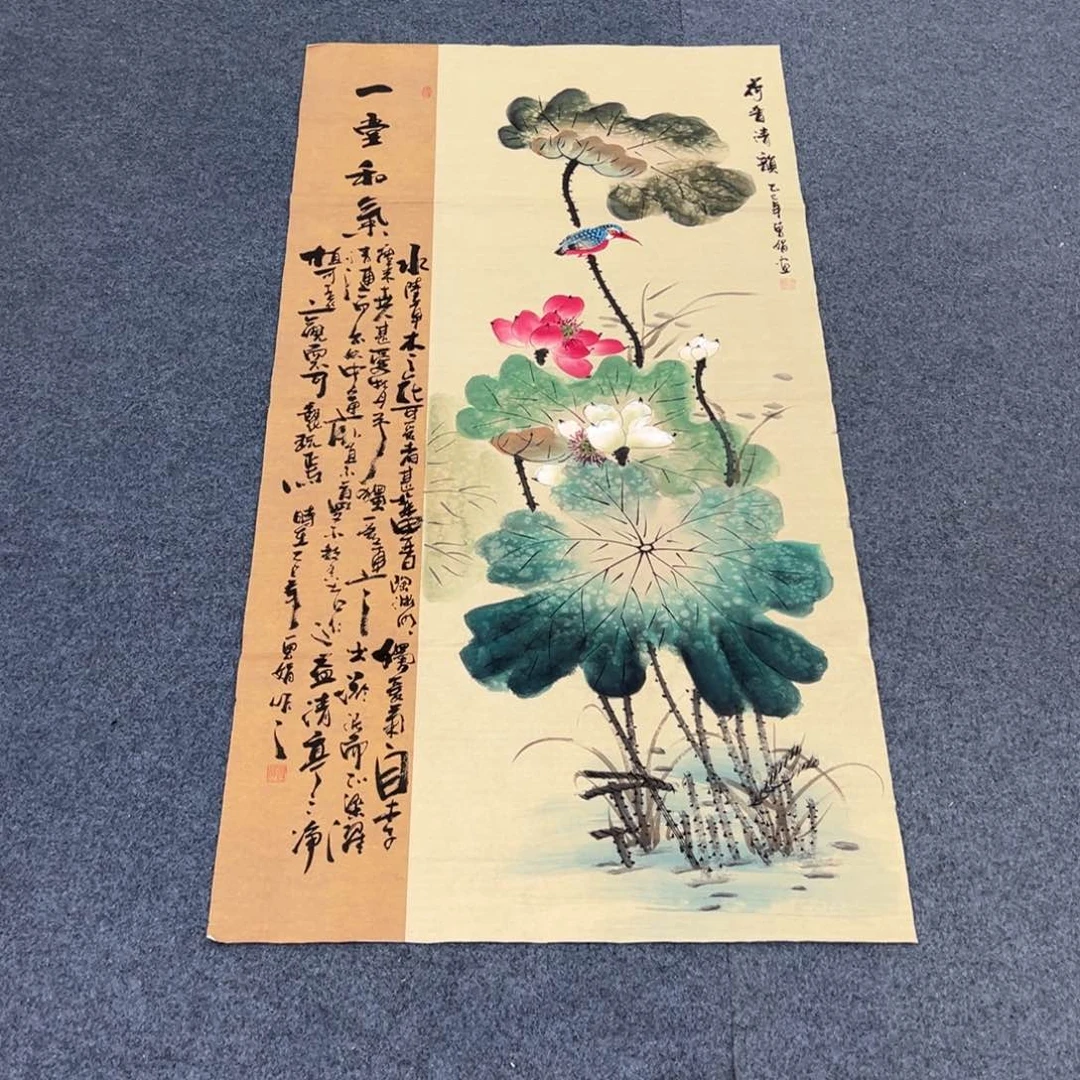 荷香清韻
乙巳年 娟畫
一堂和氣
水陸草木之花可愛者甚蕃晉陶淵明獨愛菊自李
唐來世人甚愛牡丹予獨愛蓮之出淤泥而不染濯
清漣而不妖中通外直不蔓不枝香遠益清亭亭淨
植可遠觀而不可褻玩焉 時在乙巳年 娟作